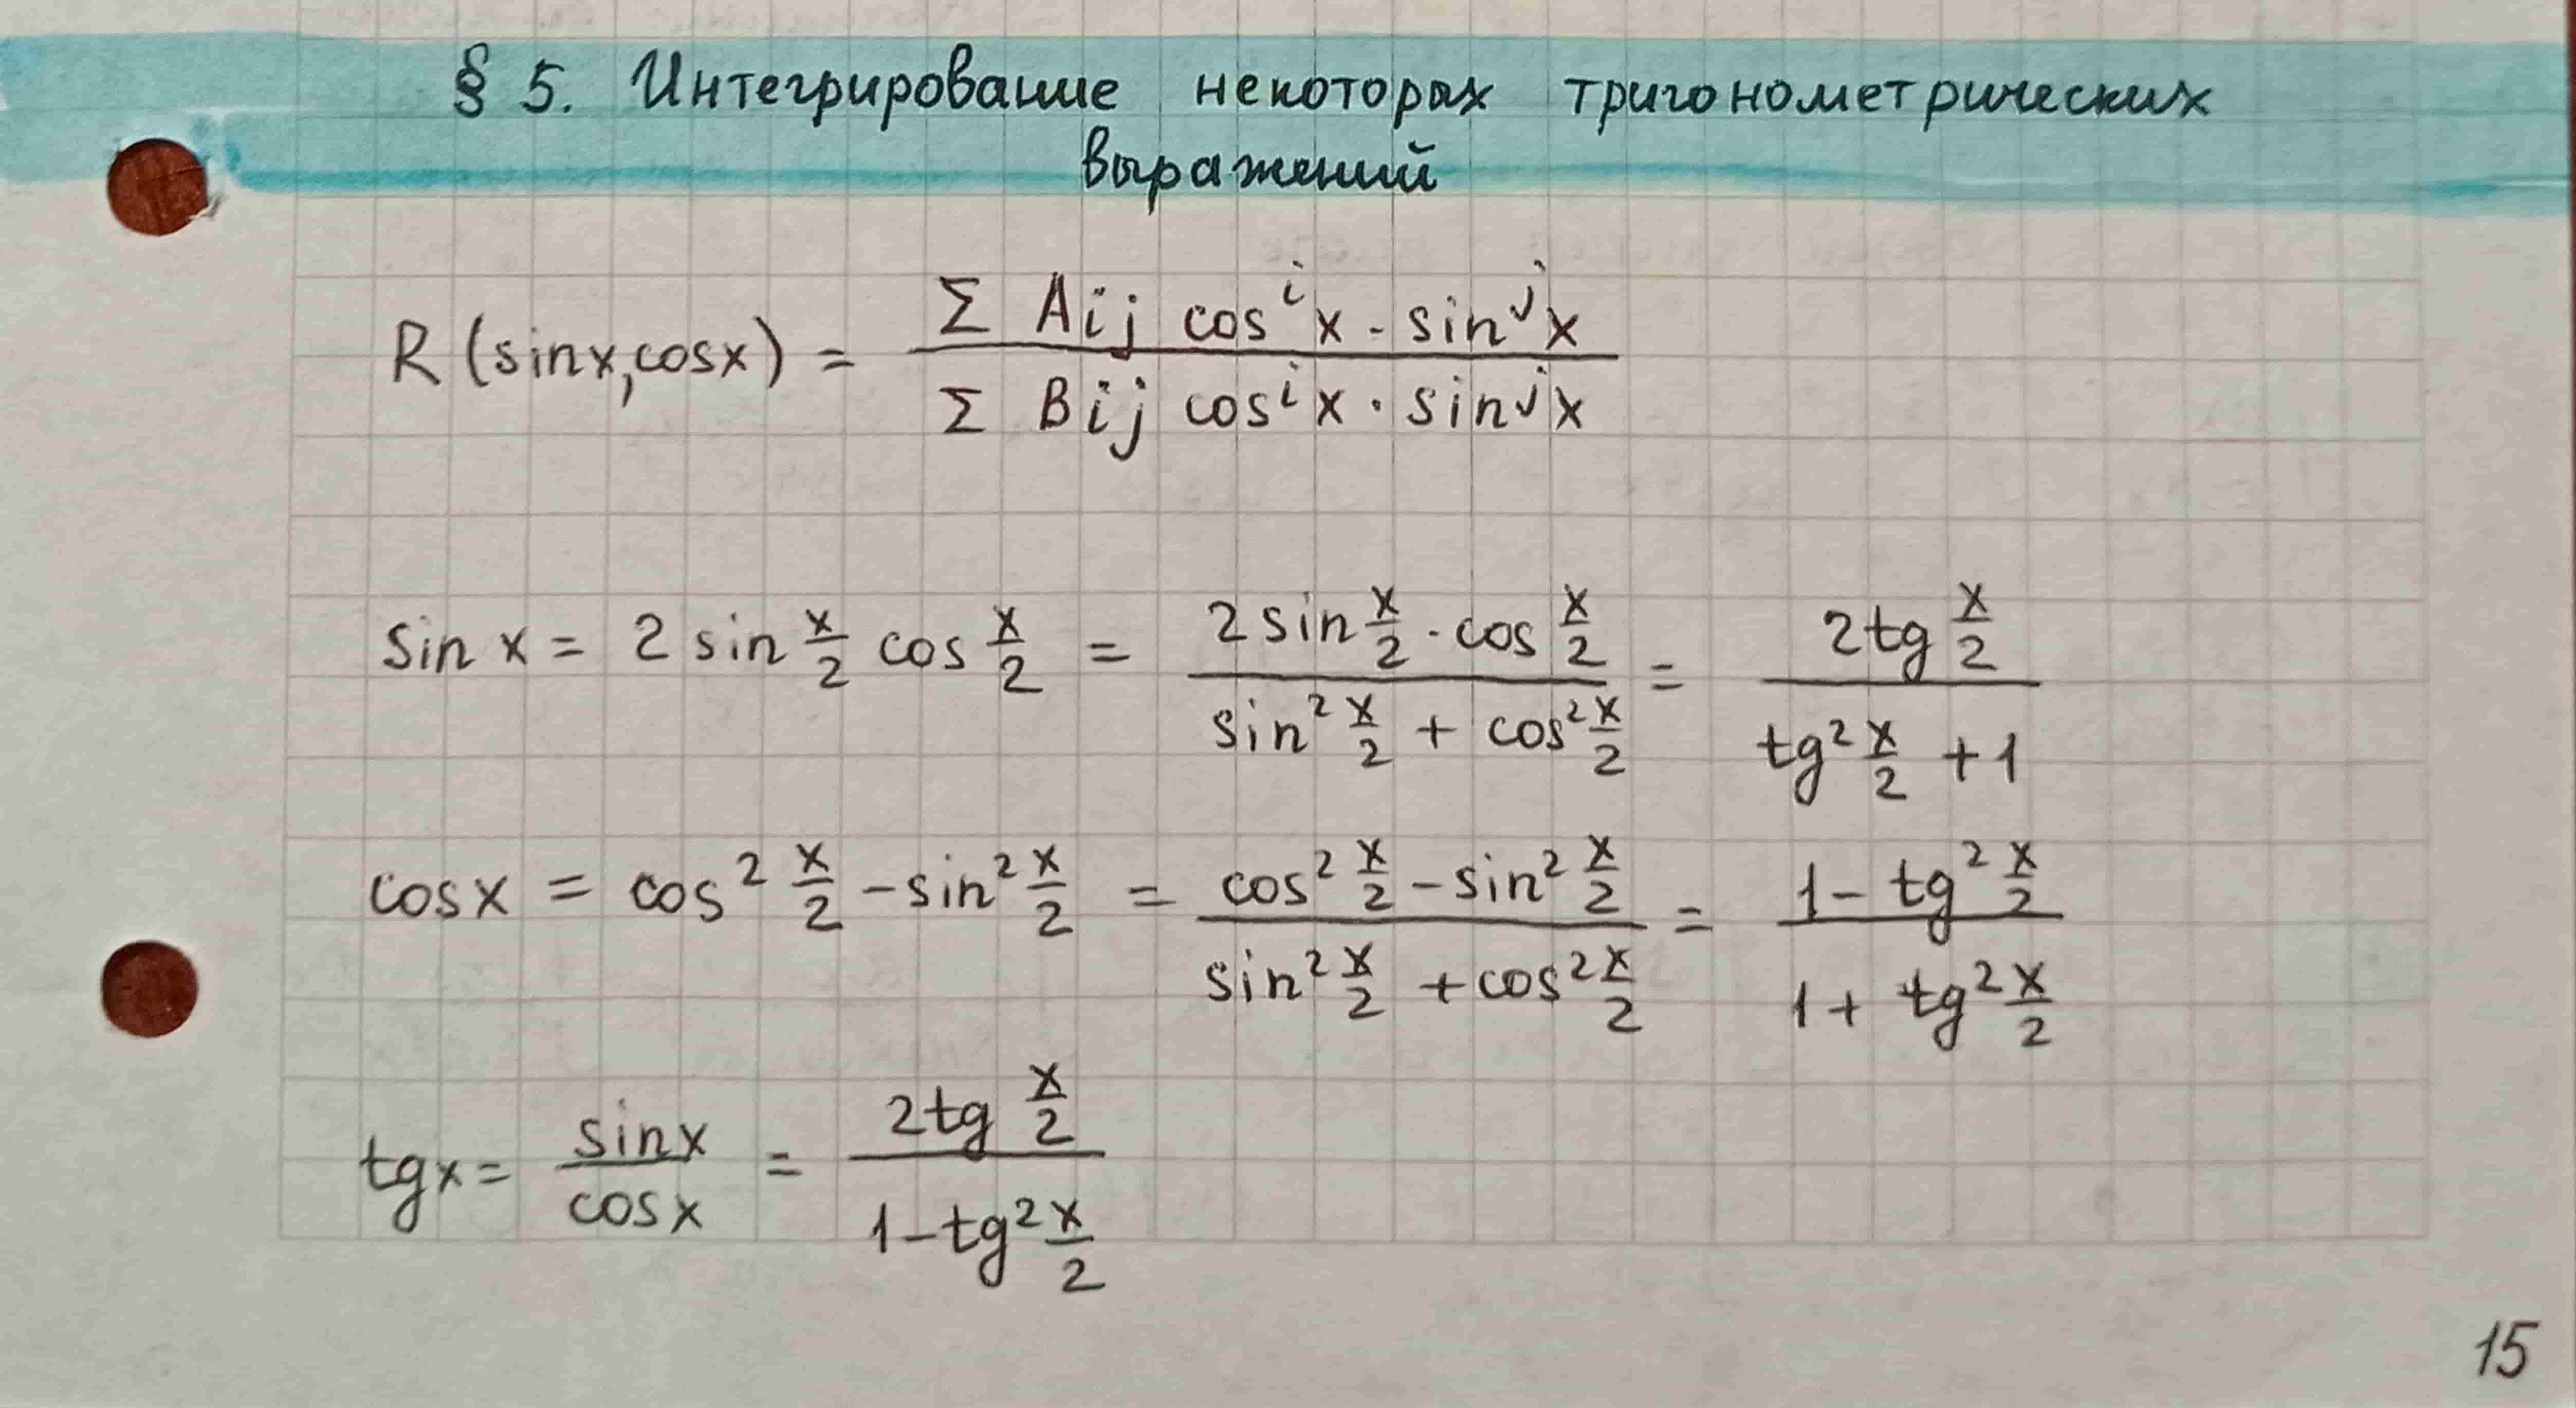 § 5. Интегрирование некоторых тригонометрических
выражений
R (sinx, cosx) = \frac{Σ A_{ij} cos^i x · sin^j x}{Σ B_{ij} cos^i x · sin^j x}
sin x = 2 sin \frac{x}{2} cos \frac{x}{2} = \frac{2 sin \frac{x}{2} · cos \frac{x}{2}}{sin^2 \frac{x}{2} + cos^2 \frac{x}{2}} = \frac{2 tg \frac{x}{2}}{tg^2 \frac{x}{2} + 1}
cos x = cos^2 \frac{x}{2} - sin^2 \frac{x}{2} = \frac{cos^2 \frac{x}{2} - sin^2 \frac{x}{2}}{sin^2 \frac{x}{2} + cos^2 \frac{x}{2}} = \frac{1 - tg^2 \frac{x}{2}}{1 + tg^2 \frac{x}{2}}
tg x = \frac{sin x}{cos x} = \frac{2 tg \frac{x}{2}}{1 - tg^2 \frac{x}{2}}
15